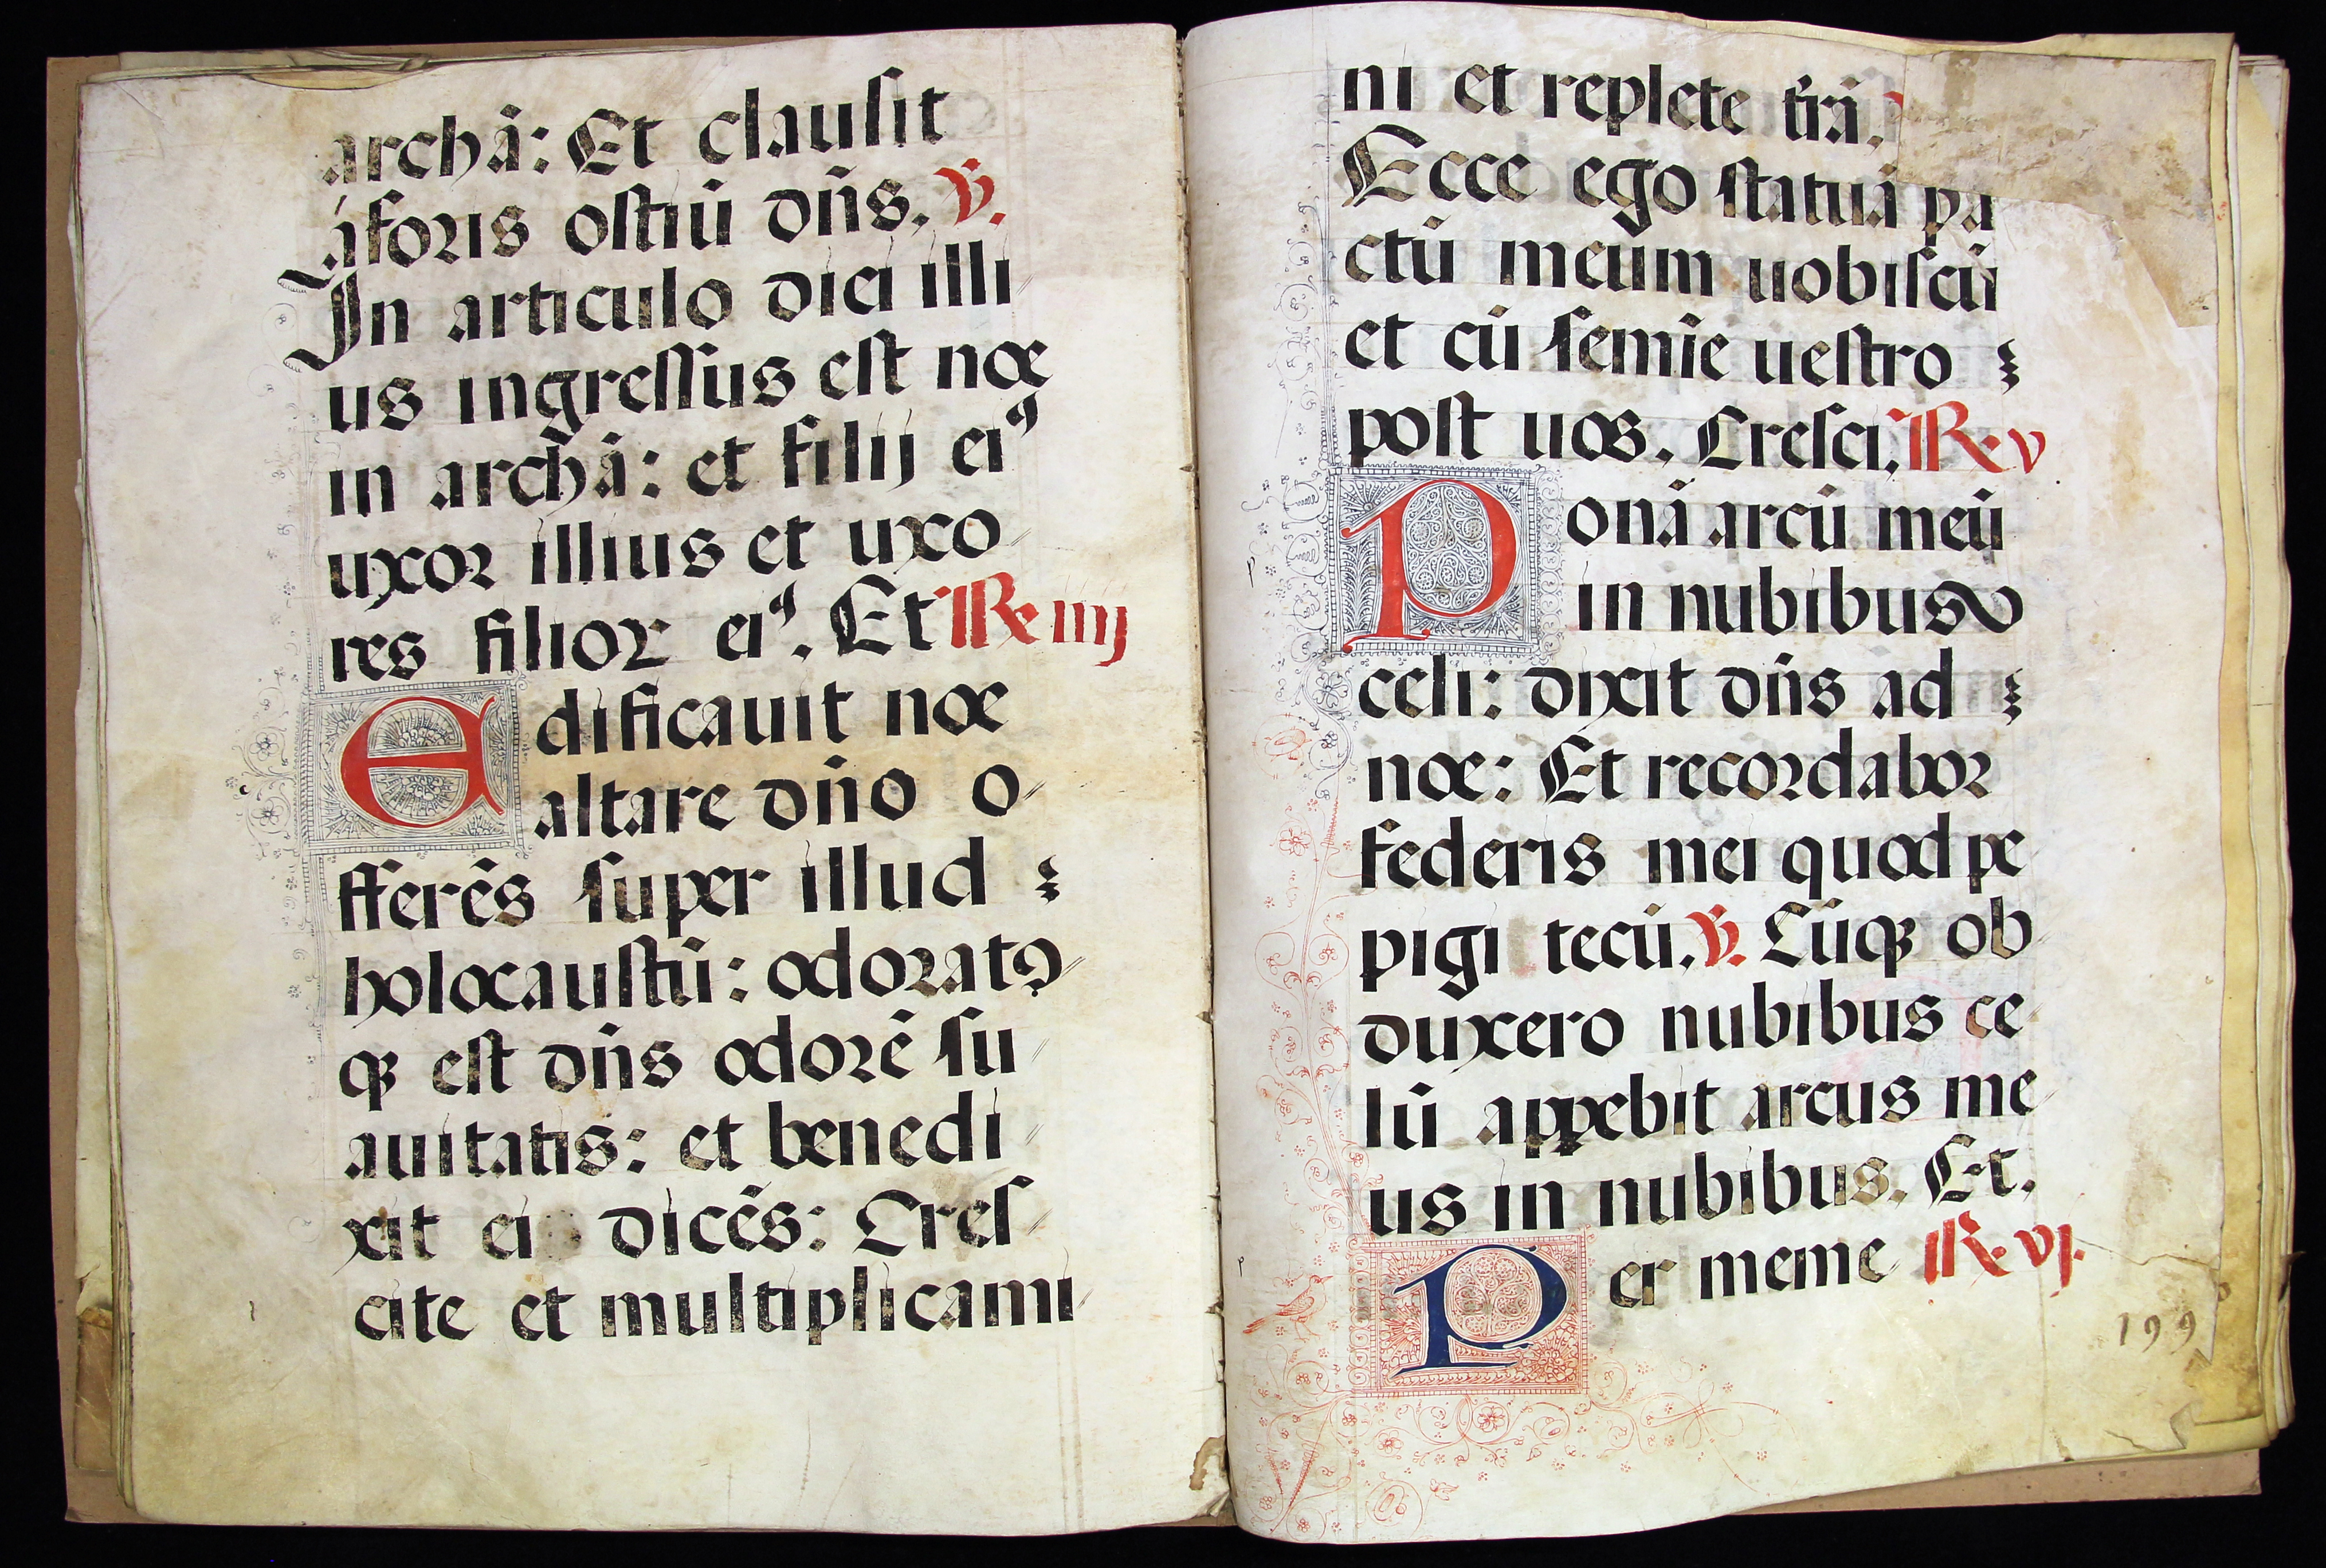 archā: Et clausit
aforis ostiū dn̄s. ℣.
In articulo diei illi
us ingressus est noe
in archā: et filij eiꝰ
uxor illius et uxo
res filioꝝ eiꝰ. Et Re iiij
Edificauit noe
altare dn̄o o
fferēs super illud
holocaustū: odoratꝰ
qꝫ est dn̄s odorē su
auitatis: et benedi
xit ei dicēs: Cres
cite et multiplicami
ni et replete tr̄ā.
Ecce ego statuā pa
ctū meum uobiscū
et cū semīe uestro
post uos. Cresci. Re v
Ponā arcū meū
in nubibus
celi: dixit dn̄s ad
noe: Et recordabor
federis mei quod pe
pigi tecū. ℣. Cūqꝫ ob
duxero nubibus ce
lū appebit arcus me
us in nubibus. Et.
Per meme Re vj.
199